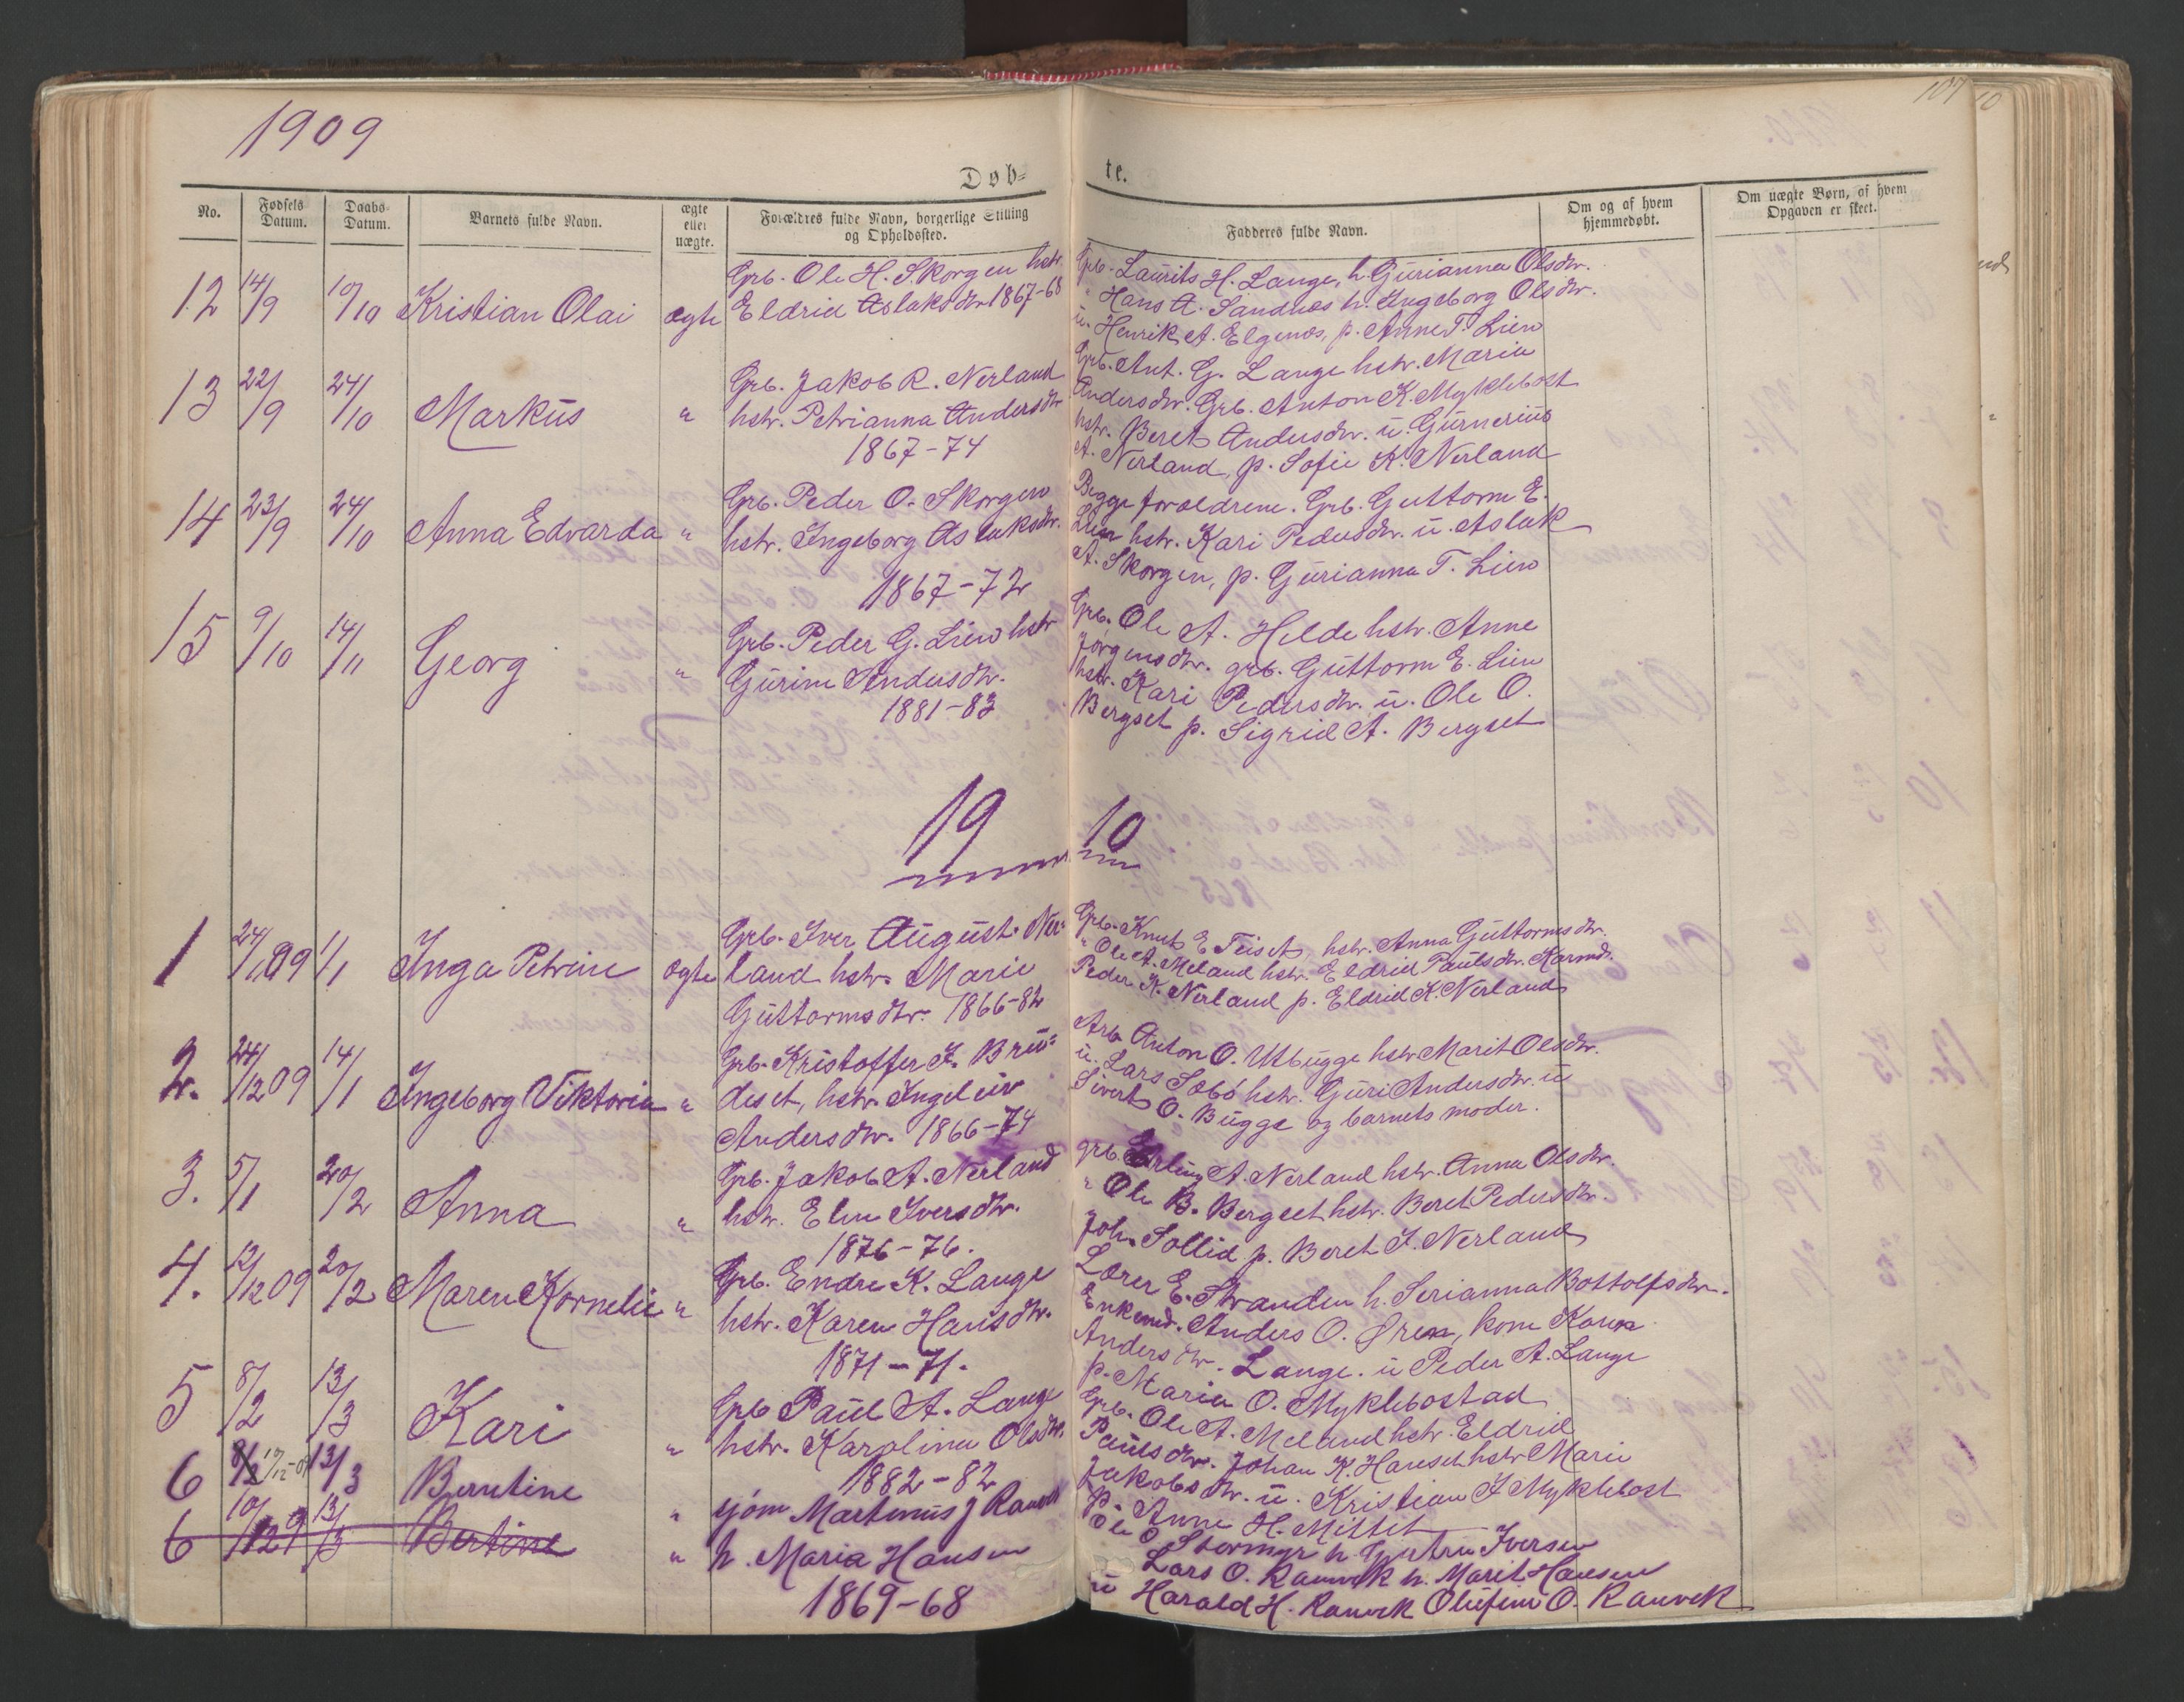 1909
107
10
Døb=
te.
No.
Fødsels Datum.
Daabs-Datum.
Barnets fulde Navn.
ægte eller uægte.
Forældres fulde Navn, borgerlige Stilling
og Opholdssted.
Fadderes fulde Navn.
Om og af hvem
hjemmedøbt.
Om uægte Børn, af hvem
Opgaven er skeet.
12 14/9 10/10 Kristian Olai ægte
Grb. Ole H. Skorgen hstr.
Eldrid Aslaksdtr 1867-68
Grb. Laurits H. Lange, h. Gurianna Olsdtr.
" Hans A. Sandnes h. Ingeborg Olsdtr.
u. Henrik A. Elgenes, p. Anne T. Lien
13 22/9 24/10 Markus "
Grb. Jakob R. Nerland
hstr. Petrianna Andersdtr
1867-74
Grb. Ant. G. Lange hstr. Maria
Andersdtr. Grb. Anton K. Myklebost
hstr. Beret Andersdtr. u. Gurnerius
A. Nerland, p. Sofie K. Nerland
14 23/9 24/10 Anna Edvarda "
Grb. Peder O. Skorgen
hstr. Ingeborg Aslaksdtr.
1867-72
Begge forældrene. Grb. Guttorm E.
Lien hstr. Kari Pedersdtr. u. Aslak
A. Skorgen, p. Gurianna T. Lien
15 9/10 14/11 Georg "
Grb. Peder G. Lien hstr
Gurine Andersdtr.
1881-83
Grb. Ole A. Helde hstr. Anne
Jørgensdtr. grb. Guttorm E. Lien
hstr. Kari Pedersdtr. u. Ole O.
Bergset p. Sigrid A. Bergset
19 10
1 24/1,09 1/1 Inga Petrine ægte
Grb. Iver August Ner=
land hstr. Marie
Guttormsdtr. 1866-82
Grb. Knut E Teiset, hstr. Anna Guttormsdtr.
" Ole A. Meland hstr. Eldrid Paulsdtr. Karmd.
Peder K. Nerland p. Eldrid K. Nerland
2. 24/12 09 14/1 Ingeborg Viktoria "
Grb. Kristoffer I. Bru=
deset, hstr. Ingeleiv
Andersdtr. 1866-74
Arb Anton O. Utbugge hstr Marit Olsdtr.
u. Lars Sæbø hstr. Guri Andersdtr. u
Sivert O. Bugge og barnets moder.
3. 5/1 20/2 Anna "
Grb. Jakob A. Nerland
hstr. Elen Iversdtr.
1876-76.
grb Erling A. Nerland hstr. Anna Olsdtr.
" Ole B. Bergset hstr. Beret Pedersdtr.
Joh. Sollid p. Beret I. Nerland
4. 12/12 09 20/2 Maren Kornelie "
Grb. Endre K. Lange
hstr. Karen Hansdtr.
1871-71.
Lærer E. Stranden h. Serianna Bottolfsdtr.
Enkemd. Anders O. Øren, kone Karen
Andersdtr. Lange. u Peder A. Lange
p. Maria O. Myklebostad
5 8/2 13/3 Kari "
Grb Paul A. Lange
hstr. Karolina Olsdtr.
1882-82
Grb. Ole A. Meland hstr. Eldrid
Paulsdtr. Johan K. Hanset hstr Marie
Jakobsdtr. u. Kristian I Myklebost
p. Anne H. Mittet
6 8/2 10/12-09 13/3 Berntine "
sjøm Martinus J Ranvik
6 10/12 9 13/3 Bertine "
h. Maria Hansen
1869-68
Ole O Stormyr h. Gjertru Iversen
Lars O. Ranvik h. Marit Hansen
u Harald H. Ranvik Olufine O. Ranvik